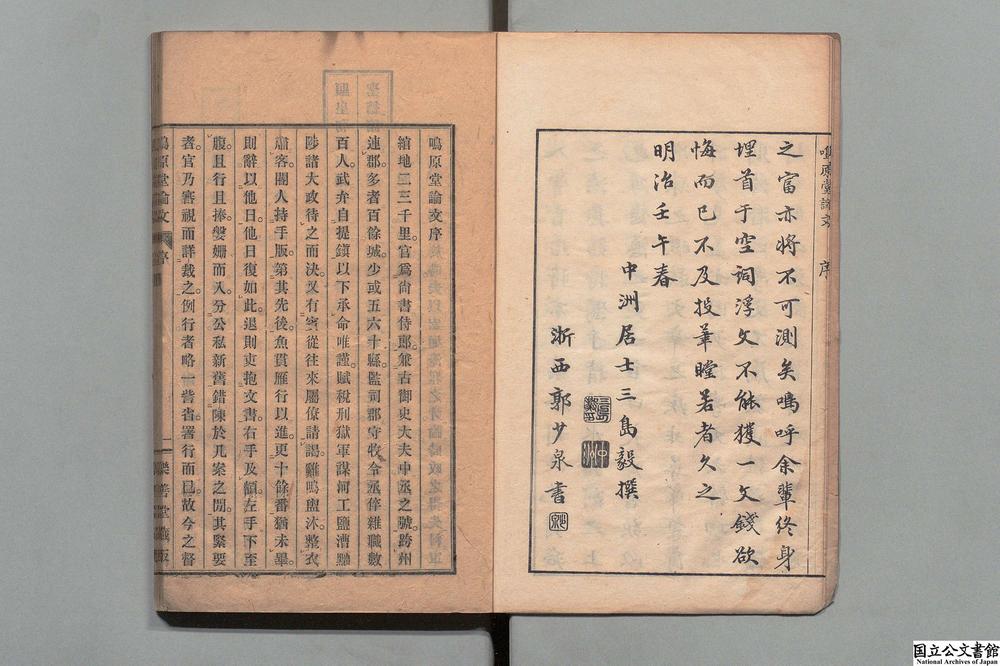 鳴原堂論文 序
之富亦将不可測矣嗚呼余輩終身
埋首于空詞浮文不能獲一文錢欲
悔而已不及投筆瞠若者久之
明治壬午春
中洲居士三島毅撰
浙西郭少泉書
鳴原堂論文序
綰地二三千里。官爲尚書侍郎。兼古御史大夫中丞之號。跨州
連郡。多者百餘城。少或五六十縣。監司郡守牧令丞倅雜職數
百人。武弁自提鎮以下承命唯謹。賦稅刑獄軍謀河工鹽漕黜
陟諸大政待之而決。又有賓從往來屬僚請謁。雞鳴盥沐。整衣
肅客。閽人持手版。第其先後。魚貫雁行以進。更十餘番猶未畢。
則辭以他日。他日復如此。退則吏抱文書。右手及額。左手下至
腹。且行且捧。槃姍而入。分公私新舊錯陳於几案之閒。其緊要
者官乃審視而詳裁之。例行者略一訾省署行而已。故今之督
鳴原堂論文 序 一 樂善堂藏版
国立公文書館
National Archives of Japan